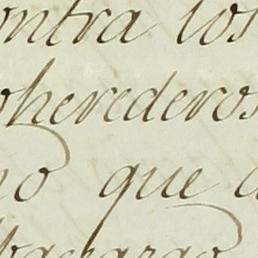 ontra los
oherederos
no que a